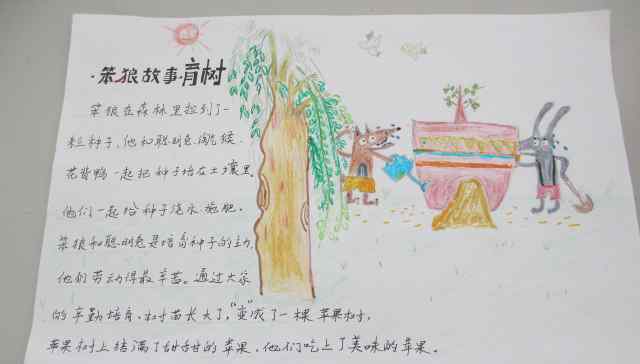 ·笨狼故事·育树
笨狼在森林里捡到了一
粒种子,他和聪明兔、佩侯、
花背鸭一起把种子培在土壤里。
他们一起给种子浇水施肥。
笨狼和聪明兔是培育种子的主力,
他们劳动得最辛苦。通过大家
的辛勤培育,树苗长大了,“变”成了一棵苹果树,
苹果树上结满了甜甜的苹果,他们吃上了美味的苹果。